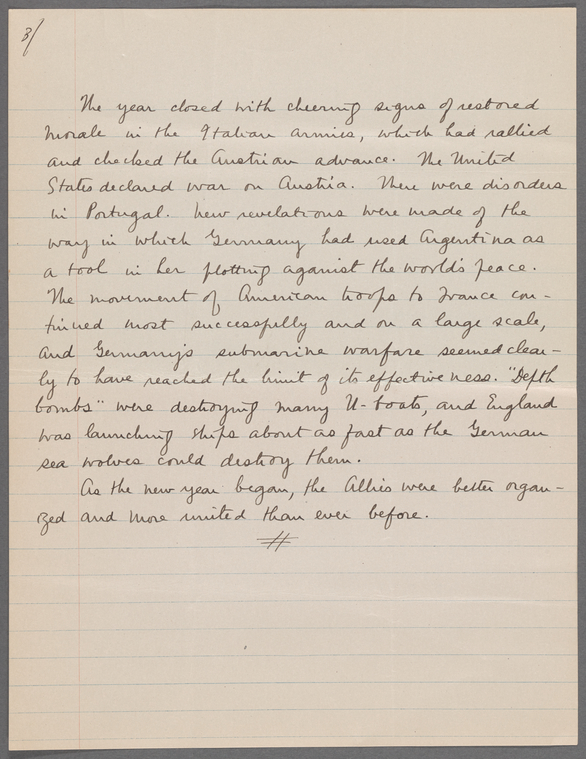 3/
The year closed with cheering signs of restored
morale in the Italian armies, which had rallied
and checked the Austrian advance. The United
States declared war on Austria. There were disorders
in Portugal. New revelations were made of the
way in which Germany had used Argentina as
a tool in her plotting against the world's peace.
The movement of American troops to France con-
tinued most successfully and on a large scale,
and Germany's submarine warfare seemed clear-
ly to have reached the limit of its effectiveness. "Depth
bombs" were destroying many U-boats, and England
was launching ships about as fast as the German
sea wolves could destroy them.
As the new year began, the Allies were better organ-
zed and more united than ever before.